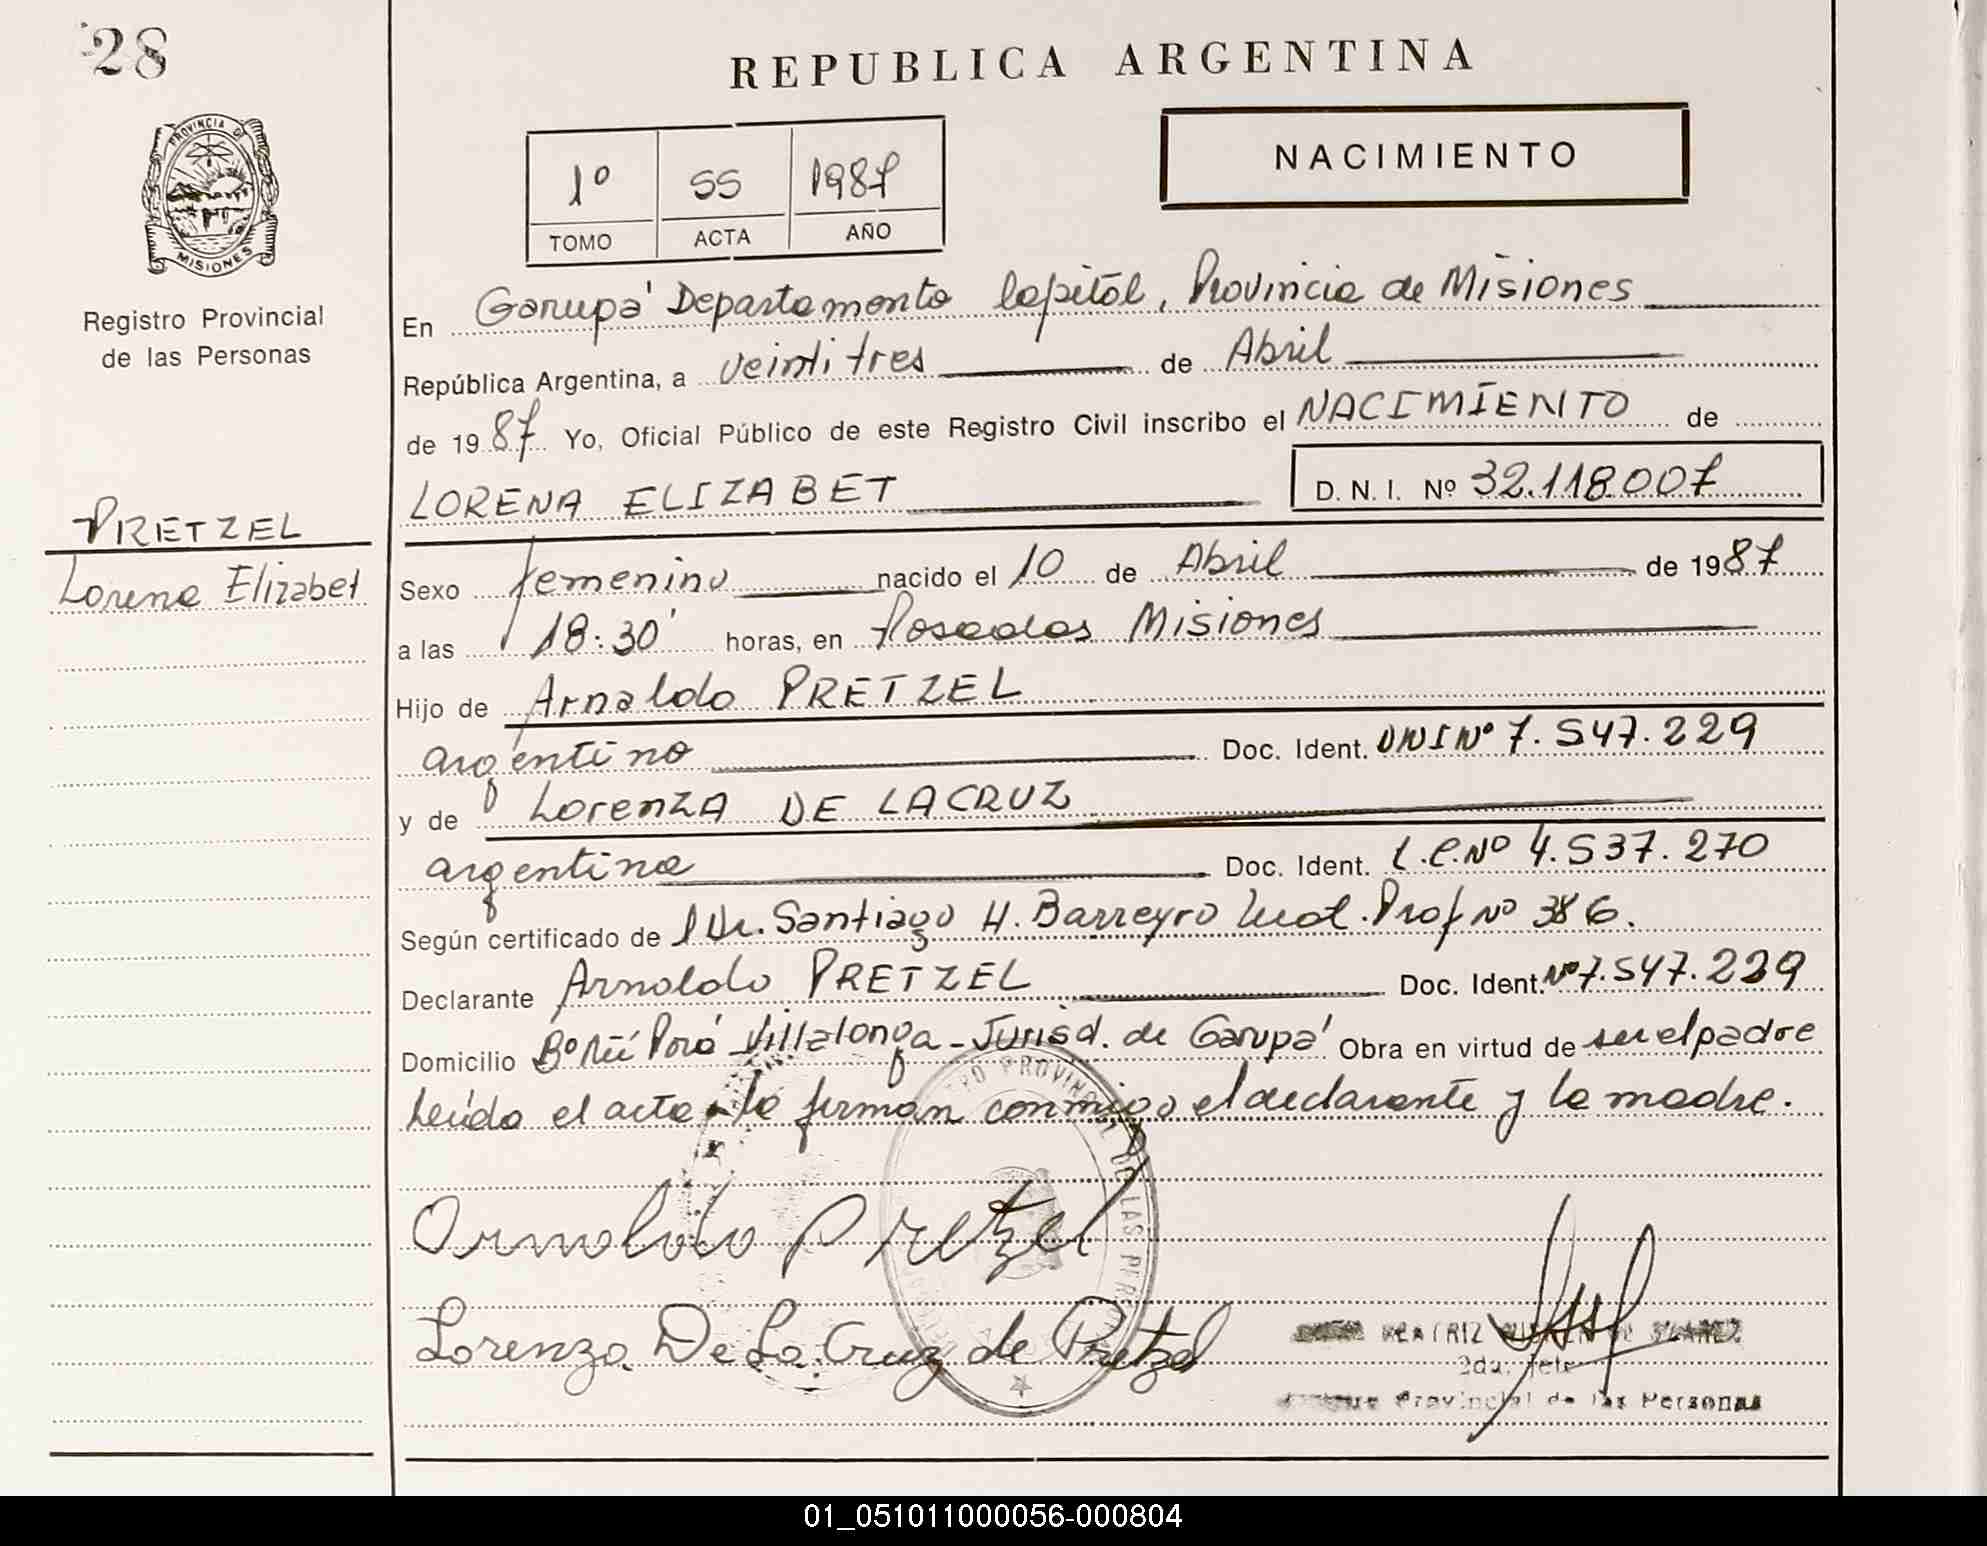 28
REPUBLICA ARGENTINA
PROVINCIA DE
MISIONES
Registro Provincial
de las Personas
1º 55 1987
TOMO ACTA AÑO
NACIMIENTO
En Garupá Departamento Capital, Provincia de Misiones
República Argentina, a veintitres de Abril
de 1987 Yo, Oficial Público de este Registro Civil inscribo el NACIMIENTO de
LORENA ELIZABET D. N. I. Nº 32.118.007
PRETZEL
Lorena Elizabet
Sexo femenino nacido el 10 de Abril de 1987
a las 18:30' horas, en Posadas Misiones
Hijo de Arnoldo PRETZEL
argentino Doc. Ident. DNI Nº 7.547.229
y de Lorenza DE LA CRUZ
argentina Doc. Ident. L.C. Nº 4.537.270
Según certificado de Dr. Santiago H. Barreyro Mat. Prof Nº 386.
Declarante Arnoldo PRETZEL Doc. Ident. Nº 7.547.229
Domicilio Bº Ñú Porá Villalonga - Jurisd. de Garupá Obra en virtud de ser el padre
Leída el acta la firman conmigo el declarante y la madre.
Arnoldo Pretzel
Lorenza De La Cruz de Pretzel
PROVINCIAL DE LAS PERSONAS
BEATRIZ DE SUAREZ
2da. Jefe
Provincial de las Personas
01_051011000056-000804